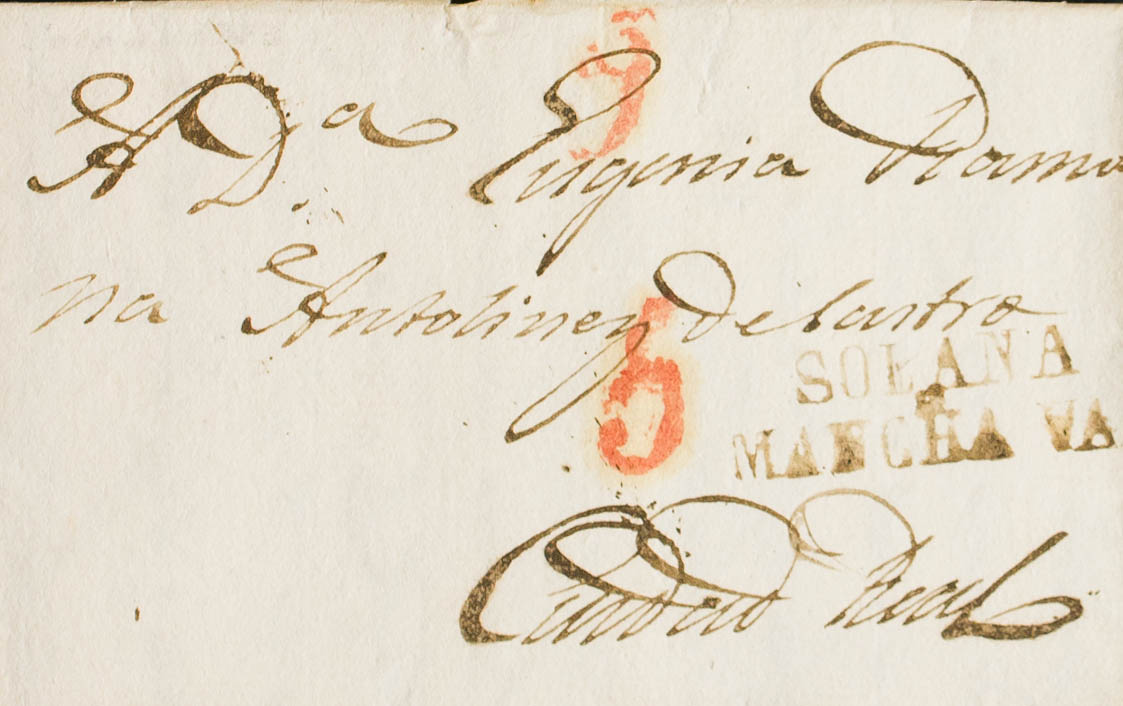 A D.ª Eugenia Ramo
na Antolinez de Castro
5
5
SOLANA
MANCHA VA
Ciudad Real